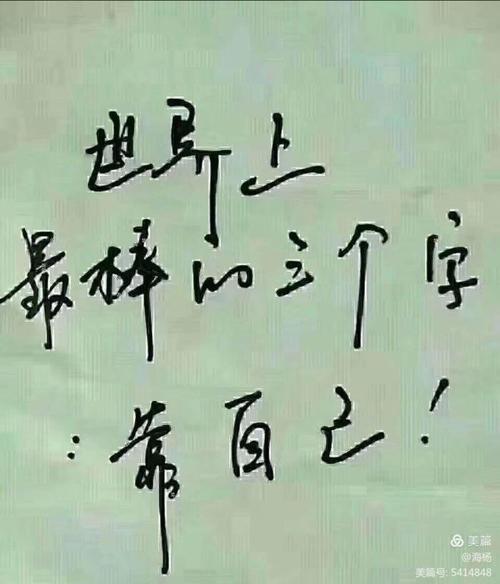 世界上
最棒的三个字
：靠自己！
美篇
@海杨
美篇号: 5414848